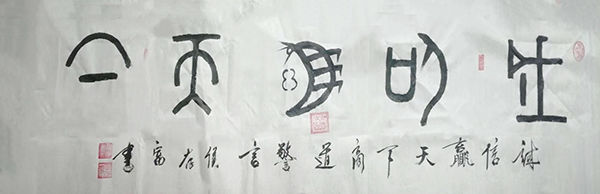 誠信贏天下
誠信贏天下商道警言侯存富書